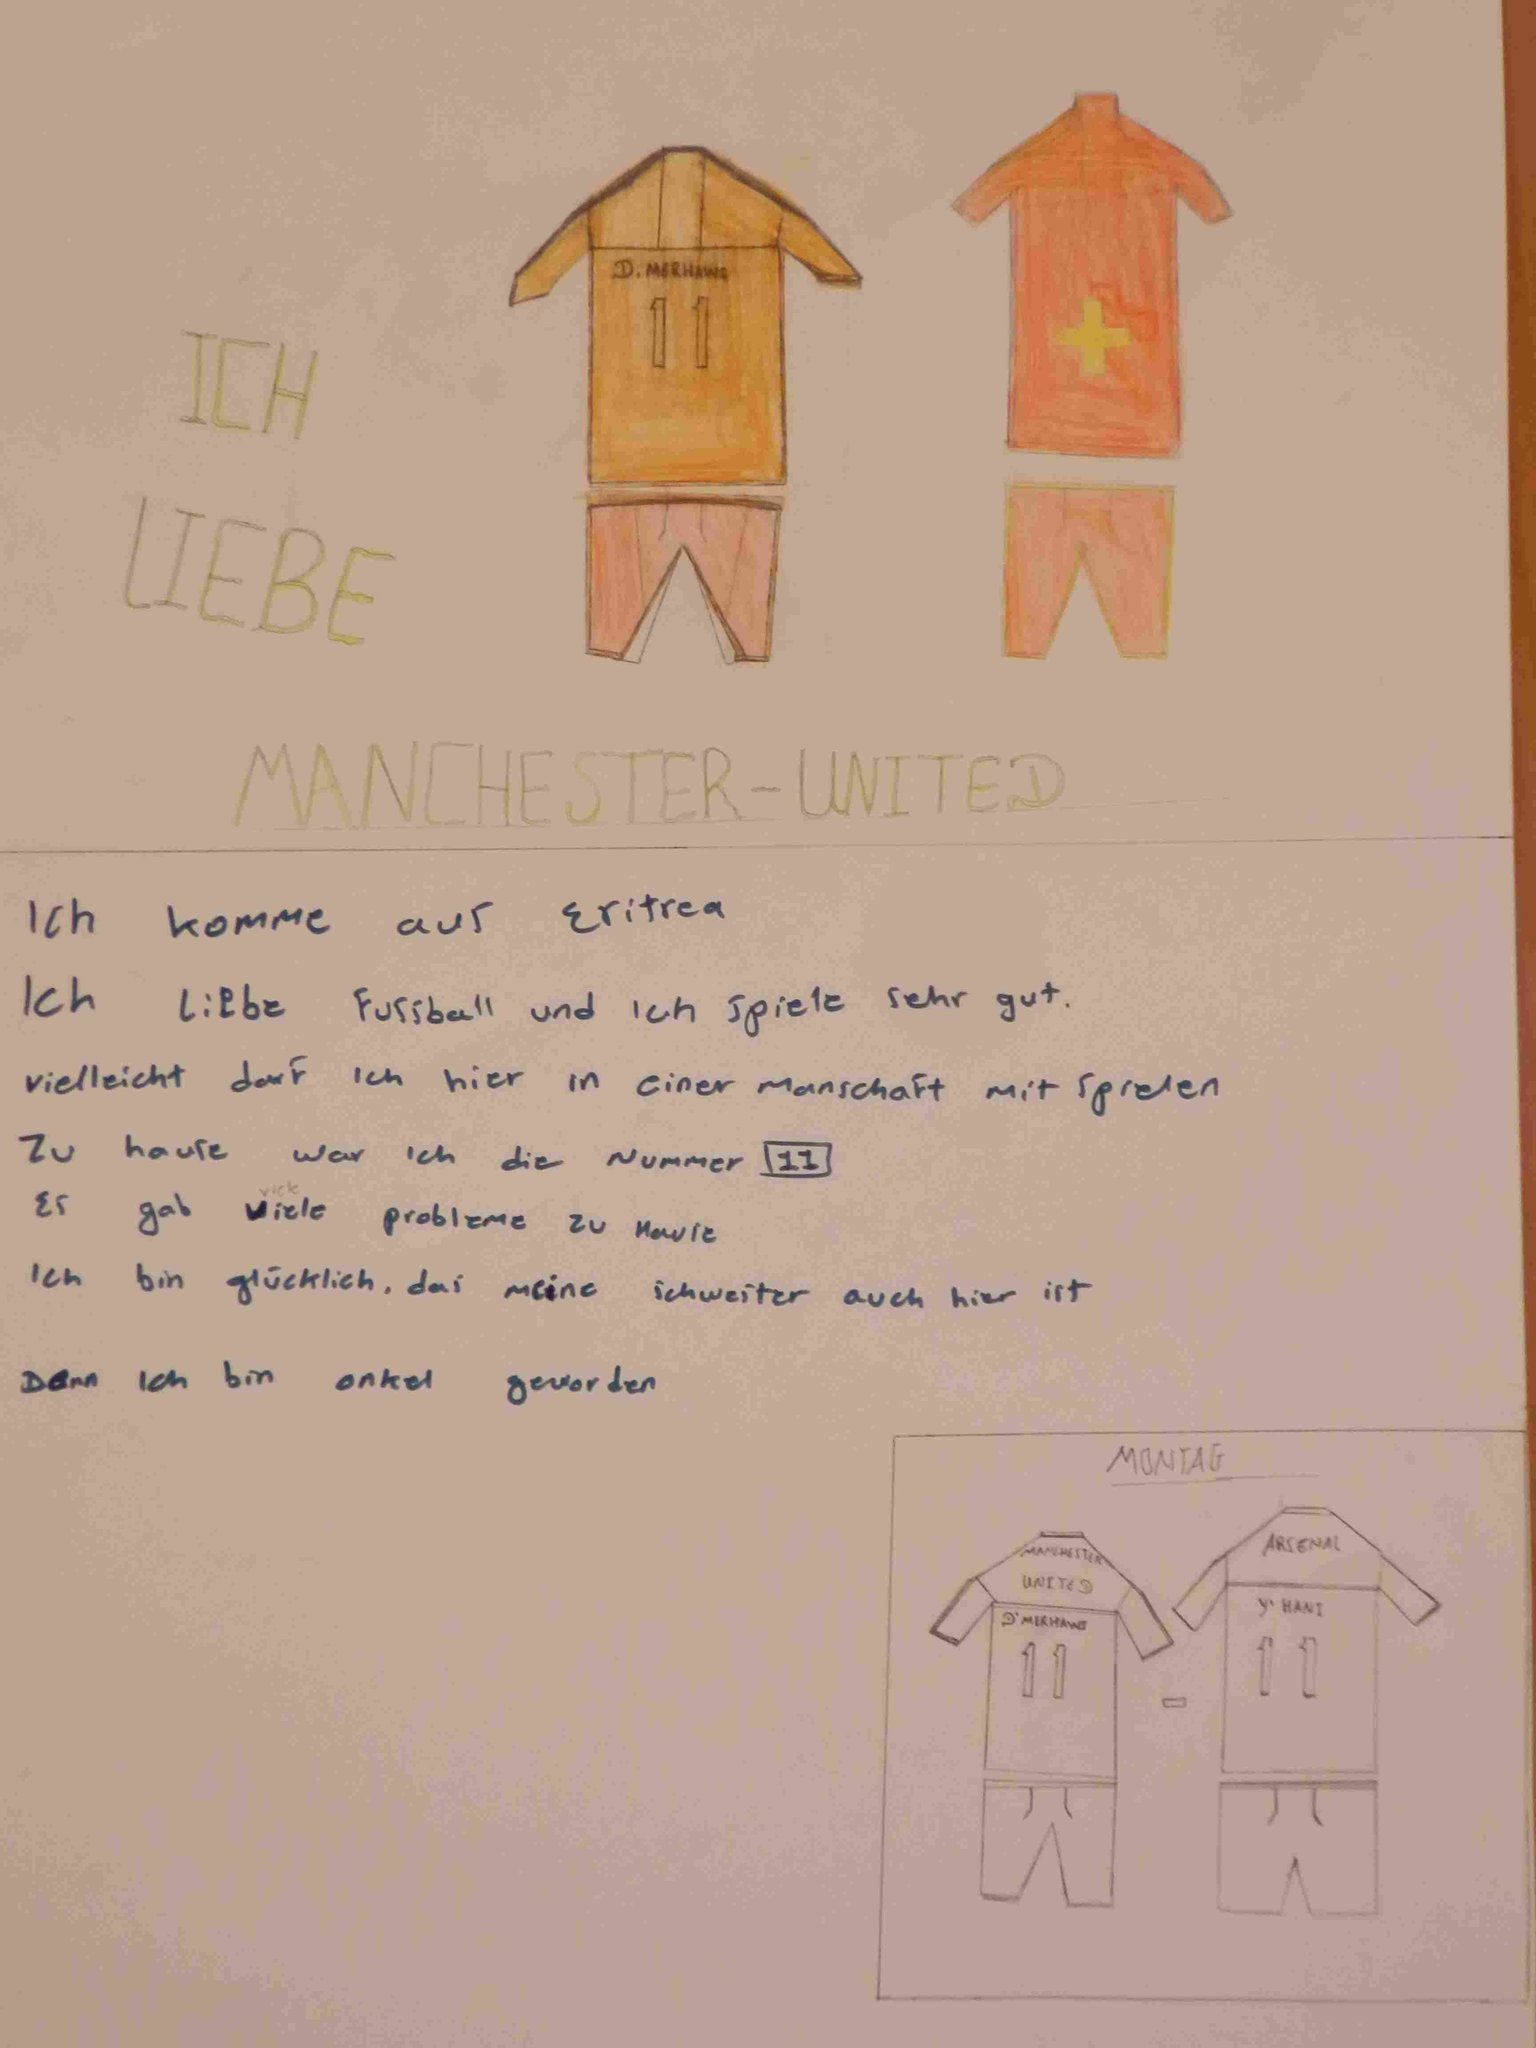 ICH
LIEBE
D. MERHAWI
11
MANCHESTER-UNITED
Ich komme aus Eritrea
Ich liebe Fussball und ich spiele sehr gut.
vielleicht darf ich hier in einer manschaft mit spielen
Zu hause war ich die Nummer 11
Es gab viele probleme zu Hause
Ich bin glücklich, das meine schwester auch hier ist
Denn ich bin onkel geworden
MONTAG
MANCHESTER
UNITED
D'MERHAWI
11
-
ARSENAL
Y' HANI
11